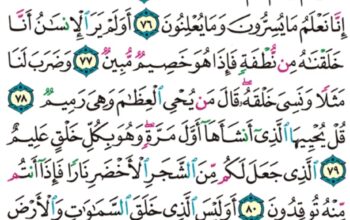 إِنَّا نَعْلَمُ مَا يُسِرُّونَ وَمَا يُعْلِنُونَ ٧٦ أَوَلَمْ يَرَ ٱلْإِنسَٰنُ أَنَّا
خَلَقْنَٰهُ مِن نُّطْفَةٍ فَإِذَا هُوَ خَصِيمٌ مُّبِينٌ ٧٧ وَضَرَبَ لَنَا
مَثَلًا وَنَسِىَ خَلْقَهُۥ قَالَ مَن يُحْىِ ٱلْعِظَٰمَ وَهِىَ رَمِيمٌ ٧٨
قُلْ يُحْيِيهَا ٱلَّذِىٓ أَنشَأَهَآ أَوَّلَ مَرَّةٍ وَهُوَ بِكُلِّ خَلْقٍ عَلِيمٌ
٧٩ ٱلَّذِى جَعَلَ لَكُم مِّنَ ٱلشَّجَرِ ٱلْأَخْضَرِ نَارًا فَإِذَآ أَنتُم
مِّنْهُ تُوقِدُونَ ٨٠ أَوَلَيْسَ ٱلَّذِى خَلَقَ ٱلسَّمَٰوَٰتِ وَٱلْأَرْضَ